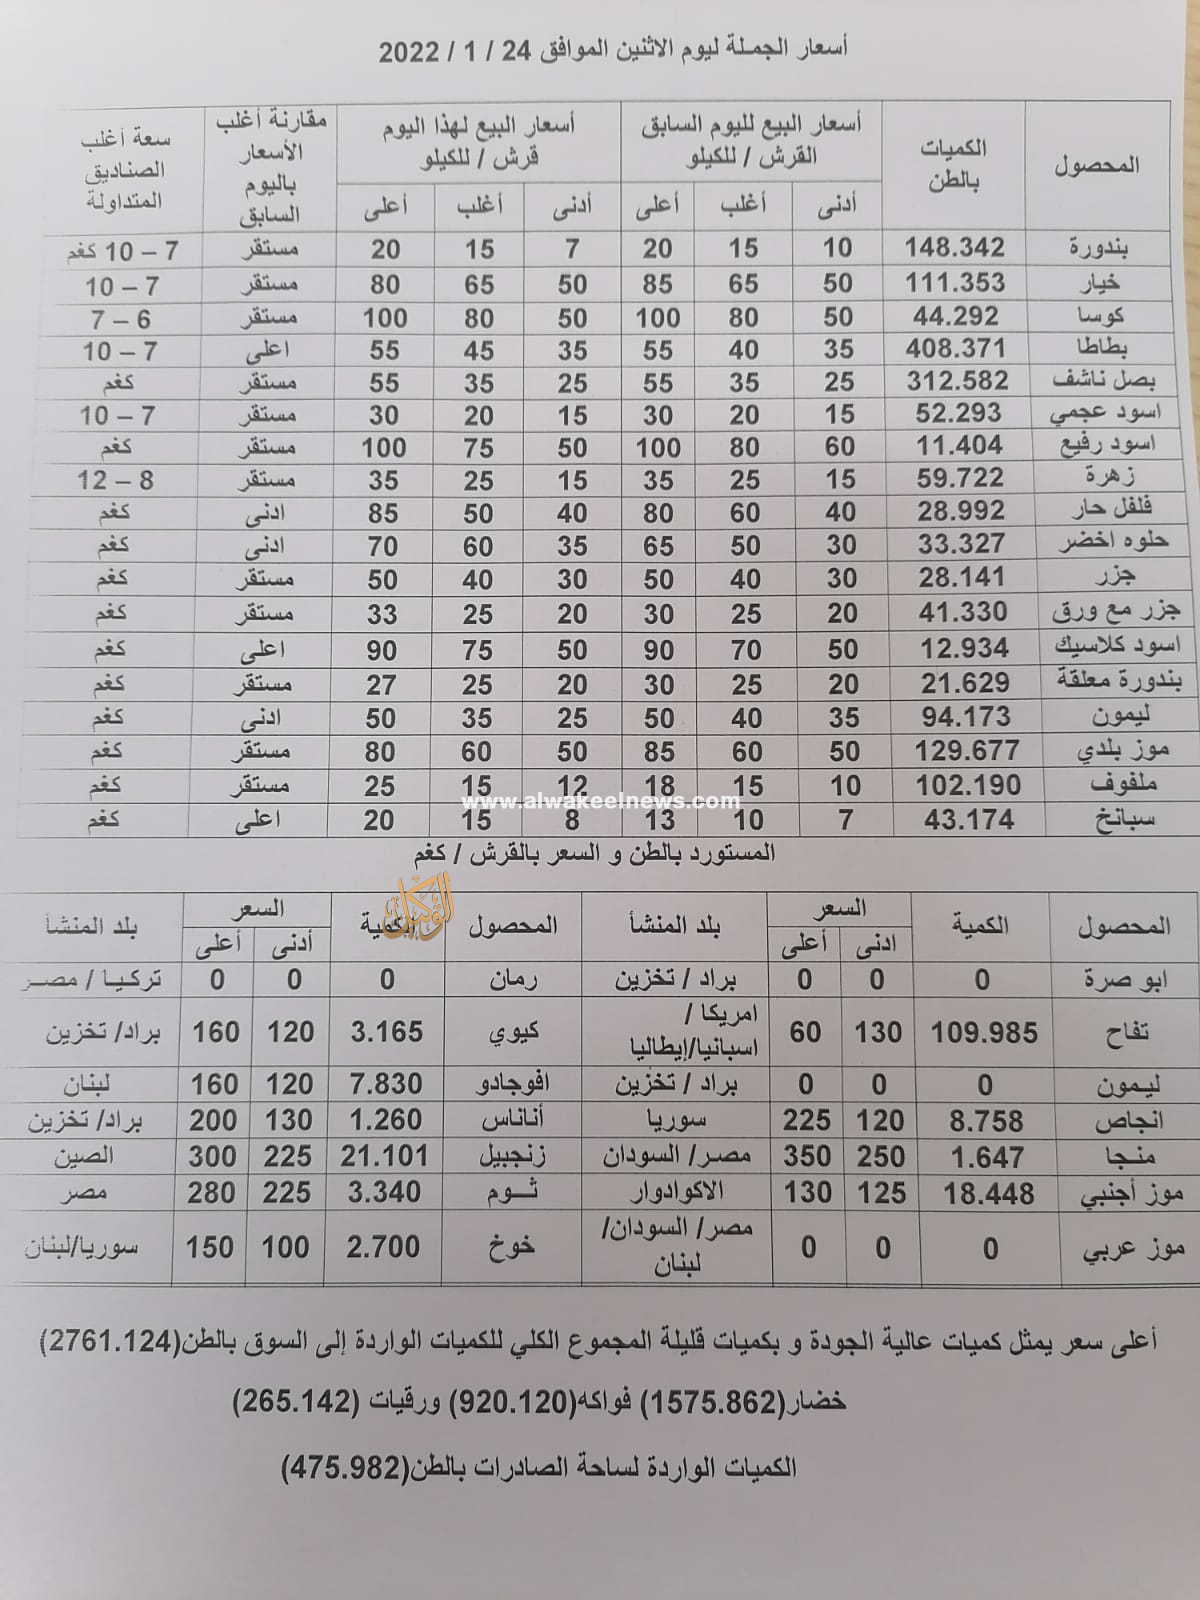 أسعار الجملة ليوم الاثنين الموافق 24 / 1 / 2022
المحصول الكميات بالطن أسعار البيع لليوم السابق القرش / للكيلو أسعار البيع لهذا اليوم قرش / للكيلو مقارنة أغلب الأسعار باليوم السابق سعة أغلب الصناديق المتداولة
أدنى أغلب أعلى أدنى أغلب أعلى
بندورة 148.342 10 15 20 7 15 20 مستقر 7 – 10 كغم
خيار 111.353 50 65 85 50 65 80 مستقر 7 – 10
كوسا 44.292 50 80 100 50 80 100 مستقر 6 – 7
بطاطا 408.371 35 40 55 35 45 55 اعلى 7 – 10
بصل ناشف 312.582 25 35 55 25 35 55 مستقر كغم
اسود عجمي 52.293 15 20 30 15 20 30 مستقر 7 – 10
اسود رفيع 11.404 60 80 100 50 75 100 مستقر كغم
زهرة 59.722 15 25 35 15 25 35 مستقر 8 – 12
فلفل حار 28.992 40 60 80 40 50 85 ادنى كغم
حلوه اخضر 33.327 30 50 65 35 60 70 ادنى كغم
جزر 28.141 30 40 50 30 40 50 مستقر كغم
جزر مع ورق 41.330 20 25 30 20 25 33 مستقر كغم
اسود كلاسيك 12.934 50 70 90 50 75 90 اعلى كغم
بندورة معلقة 21.629 20 25 30 20 25 27 مستقر كغم
ليمون 94.173 35 40 50 25 35 50 ادنى كغم
موز بلدي 129.677 50 60 85 50 60 80 مستقر كغم
ملفوف 102.190 10 15 18 12 15 25 مستقر كغم
www.alwakeelnews.com
سبانخ 43.174 7 10 13 8 15 20 اعلى كغم
المستورد بالطن و السعر بالقرش / كغم
الوكيل
المحصول الكمية السعر بلد المنشأ المحصول الكمية السعر بلد المنشأ
ادنى أعلى أدنى أعلى
ابو صرة 0 0 0 براد / تخزين رمان 0 0 0 تركيا / مصر
تفاح 109.985 130 60 امريكا / اسبانيا/إيطاليا كيوي 3.165 120 160 براد/ تخزين
ليمون 0 0 0 براد / تخزين افوجادو 7.830 120 160 لبنان
انجاص 8.758 120 225 سوريا أناناس 1.260 130 200 براد/ تخزين
منجا 1.647 250 350 مصر/ السودان زنجبيل 21.101 225 300 الصين
موز أجنبي 18.448 125 130 الاكوادوار ثوم 3.340 225 280 مصر
موز عربي 0 0 0 مصر/ السودان/ لبنان خوخ 2.700 100 150 سوريا/لبنان
أعلى سعر يمثل كميات عالية الجودة و بكميات قليلة المجموع الكلي للكميات الواردة إلى السوق بالطن(2761.124)
خضار(1575.862) فواكه(920.120) ورقيات (265.142)
الكميات الواردة لساحة الصادرات بالطن(475.982)